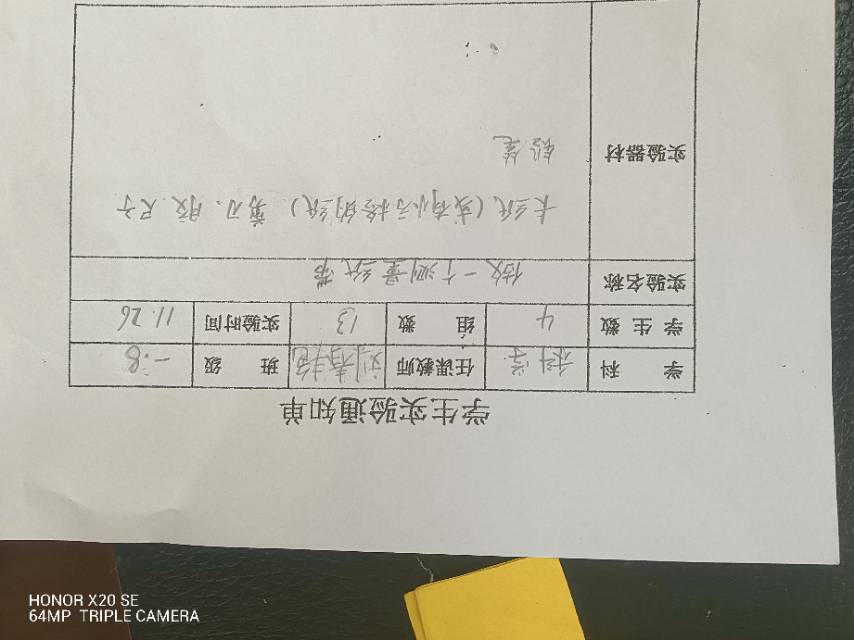 学生实验通知单
学 科 科学 任课教师 刘春艳 班 级 一.8
学生数 4 组 数 13 实验时间 11.26
实验名称 做一个测量纸带
实验器材 卡纸(或有小方格的纸)、剪刀、胶、尺子
铅笔
HONOR X20 SE
64MP TRIPLE CAMERA